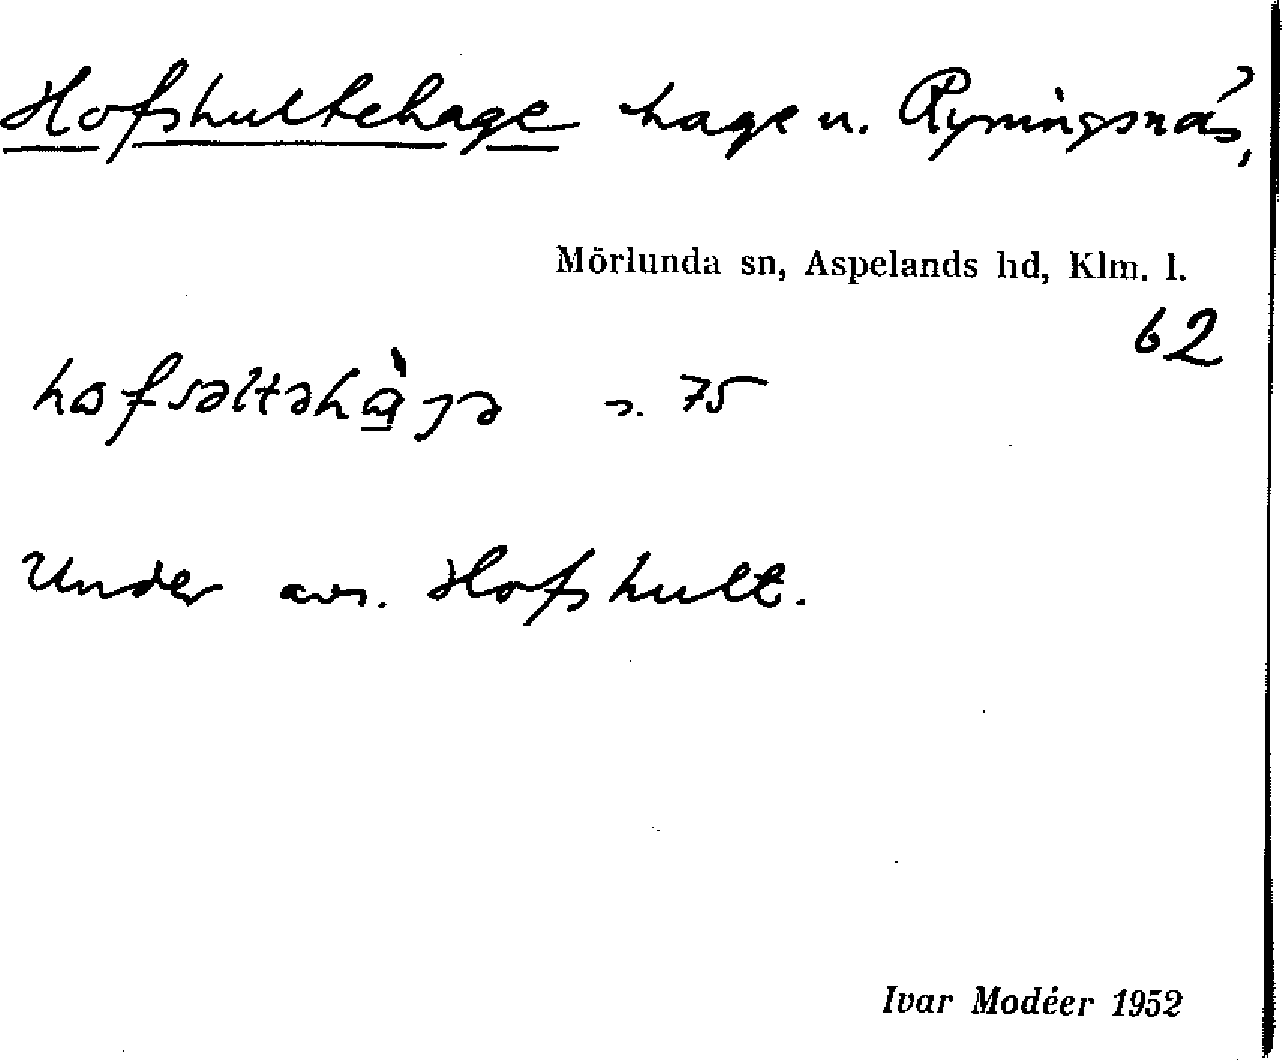 Hofshultehage hage u. Ryningsnäs,
Mörlunda sn, Aspelands hd, Klm. l.
62
s. 75
Under avs. Hofshult.
Ivar Modéer 1952